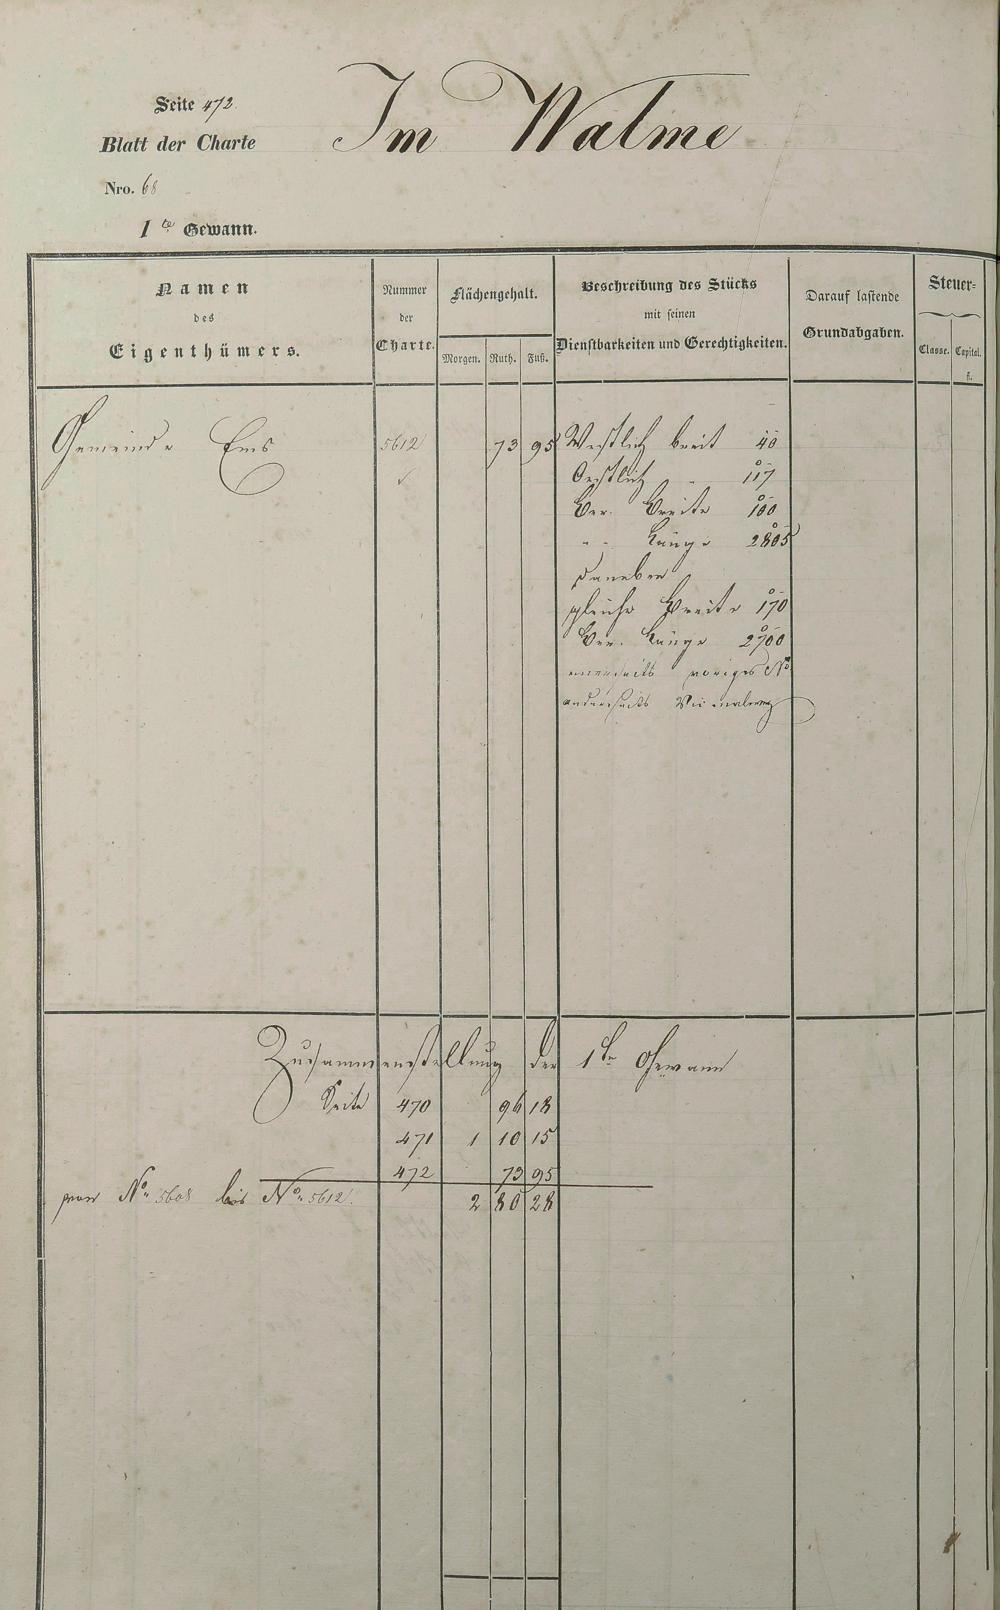 Seite 472
Im Walme
Blatt der Charte
Nro. 68
1te Gewann.
Namen
des
Eigenthümers.
Nummer
der
Charte.
Flächengehalt.
Morgen. Ruth. Fuß.
Beschreibung des Stücks
mit seinen
Dienstbarkeiten und Gerechtigkeiten.
Darauf lastende
Grundabgaben.
Steuer-
Classe. Capital.
fl.
Gemeinde Ems 5612 73 95 Westlich breit 40
Oestlich " 117
Ber. Breite 100
" " Länge 2805
daneben
gleiche Breite 170
Ber. Länge 2700
einerseits voriges No
anderseits
Zusammenstellung der 1te Gewann
Seite 470 96 18
471 1 10 15
472 73 95
von No 5608 bis No 5612. 2 80 28